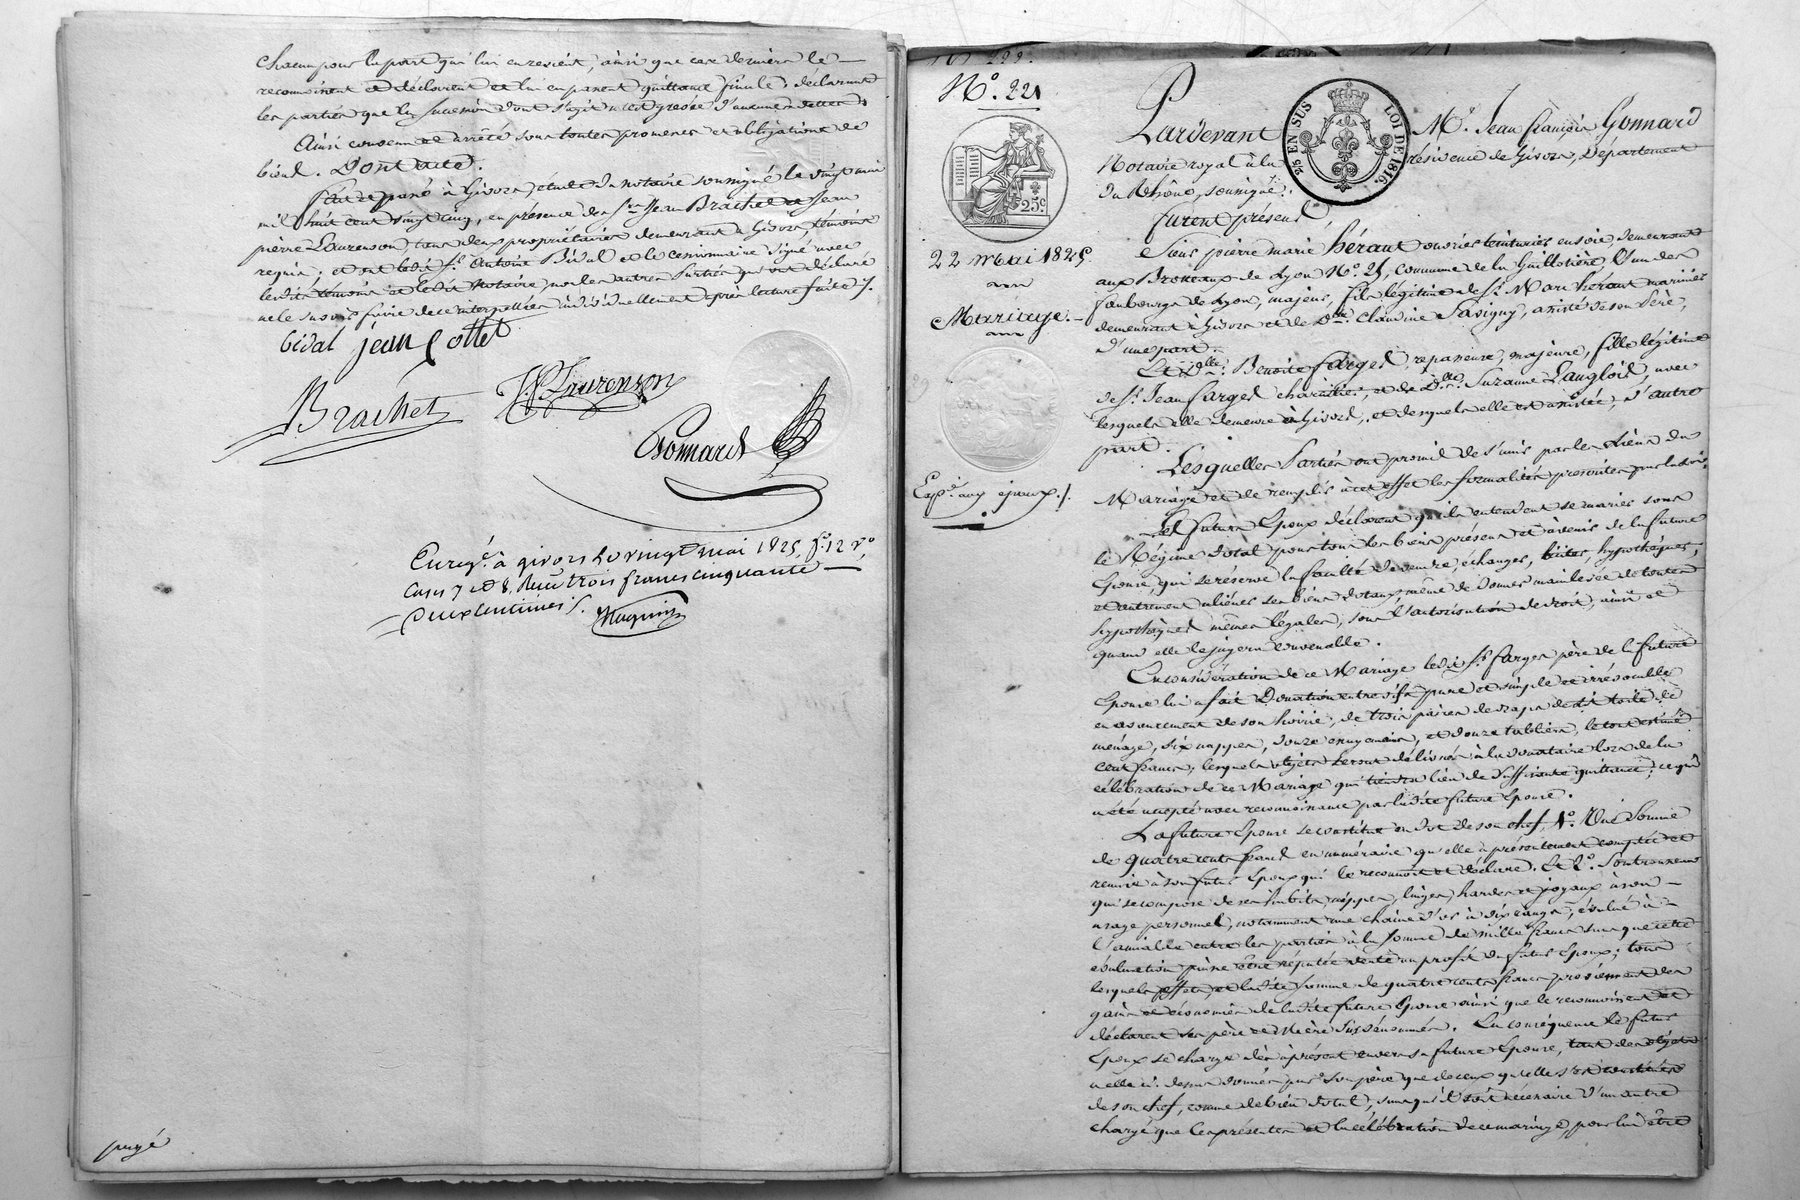 Chacun pour la part qui lui en revient, ainsi que ces derniers le
reconnoissent et déclarent et lui en passent quittance finale, déclarant
les parties que la succession dont s'agit n'est grevée d'aucunes dettes
Ainsi convenu et arrêté sous toutes promesses et obligations de
biens. Dont acte.
Fait et passé à Givors, étude du notaire soussigné le vingt mai
mil huit cent vingt cinq, en présence des Srs Jean Brachet et Jean
pierre Laurenson, tous deux propriétaires demeurant à Givors, témoins
requis; et ont ledit Sr. Antoine Bidal et le cessionnaire signé avec
lesdits témoins et ledit Notaire, non les autres parties qui ont déclaré
ne le savoir faire de ce interpellées individuellement après lecture faite ./.
bidal jean Collet
Brachet J.P. Laurenson
Gonnard
Enregé. à givors le vingt mai 1825, fo. 12 vo,
Cases 7 et 8, Reçu trois francs cinquante
deux centimes ./.
payé
No. 221
25c
22 Mai 1825
Mariage.
Expé. aux époux ./.
25 EN SUS LOI DE 1816.
Pardevant Me. Jean françois Gonnard
Notaire royal à la résidence de Givors, Département
du Rhône, soussigné.
furent présens,
Sieur pierre marie hérant ouvrier teinturier en soie demeurant
aux Broteaux de Lyon No. 25, commune de la Guillotière, l'un des
faubourgs de Lyon, majeur, fils légitime de Sr. Marc hérant marinier
demeurant à Givors et de Dme. Claudine Savigny, assisté de son père,
d'une part.
Et Dlle. Benoite farges, repasseuse, majeure, fille légitime
de Sr. Jean farges et de D. Suzanne Langlois, avec
lesquels elle demeure à Givors, et desquels elle est assistée, d'autre
part.
Lesquelles Parties ont promis de s'unir par les Liens du
Mariage et de remplir à cet effet les formalités prescrites par la loi.
Les futurs Epoux déclarent qu'ils entendent se marier sous
le Régime dotal pour tous les biens présens et à venir de la future
Epouse, qui se réserve la faculté de vendre, échanger, hypothéquer,
et autrement aliéner ses biens dotaux, même de donner mainlevée de toutes
hypothèques mêmes légales, sous l'autorisation de droit, ainsi et
quand elle le jugera convenable.
En considération de ce Mariage ledit Sr. farges père de la future
Epouse lui a fait Donation entre vifs pure et simple et irrévocable
en avancement de son hoirie, de trois paires de draps de lit toile de
ménage, six nappes, douze essuyemains, et douze tabliers, le tout estimé
cent francs, lesquels objets seront délivrés à la donataire lors de la
célébration de ce Mariage qui tiendra lieu de suffisante quittance; ce qui
a été accepté avec reconnoissance par ladite future Epouse.
La future Epouse se constitue en dot de son chef, 1o. Une Somme
de quatre cents francs en numéraire qu'elle a présentement comptée et
remise à son futur Epoux qui le reconnoit et déclare. Et 2o. Son trousseau
qui se compose de ses habits, nippes, linges, hardes et joyaux à son
usage personnel, notamment une chaine d'or à dix rangs, évalué à
l'amiable entre les parties à la somme de mille francs sans que cette
évaluation puisse être réputée vente au profit du futur Epoux; tous
lesquels effets et ladite somme de quatre cents francs proviennent des
gains et économies de ladite future Epouse ainsi que le reconnoissent et
déclarent ses père et Mère susdénommés. En conséquence le futur
Epoux se charge dès à présent envers sa future Epouse, tant des objets
à elle ci-dessus donnés par son père que de ceux qu'elle s'est constitués
de son chef, comme de bien dotal, sans qu'il soit nécessaire d'un autre
chargé que les présentes et la célébration de ce mariage, pour lui être